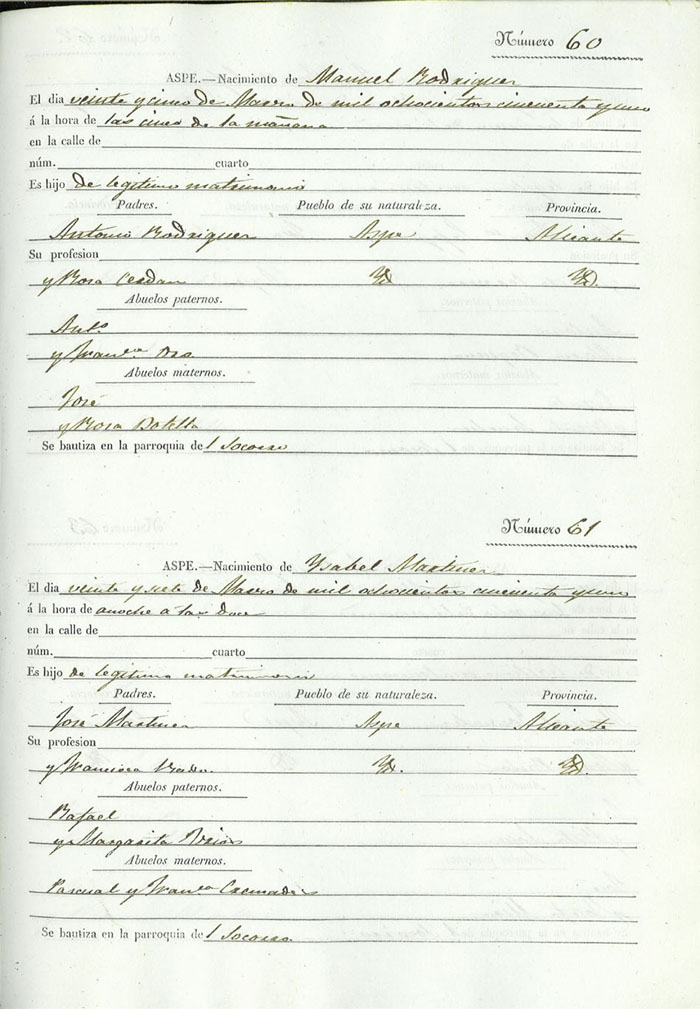 Número 60
ASPE.—Nacimiento de Manuel Rodriguez
El dia veinte y cinco de Marzo de mil ochocientos cincuenta y uno
á la hora de las cinco de la mañana
en la calle de
núm. cuarto
Es hijo de legitimo matrimonio
Padres. Pueblo de su naturaleza. Provincia.
Antonio Rodriguez Aspe Alicante
Su profesion
y Rosa Cerdan Yd. Yd.
Abuelos paternos.
Antº
y Franca
Abuelos maternos.
José
y Rosa Botella
Se bautiza en la parroquia del Socorro
Número 61
ASPE.—Nacimiento de Ysabel Martinez
El dia veinte y siete de Marzo de mil ochocientos cincuenta y uno
á la hora de anoche a las doce
en la calle de
núm. cuarto
Es hijo de legitimo matrimonio
Padres. Pueblo de su naturaleza. Provincia.
José Martinez Aspe Alicante
Su profesion
y Francisca Yd. Yd.
Abuelos paternos.
Rafael
y Margarita
Abuelos maternos.
Pascual y Franca Cremades
Se bautiza en la parroquia del Socorro